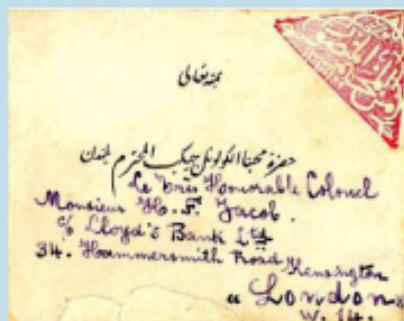 بمنه تعالى
حضرة محبنا الكولونل جيكب المحترم بلندن
Le Très Honorable Colonel
Monsieur H. F. Jacob.
c/o Lloyd's Bank Ltd
34. Hammersmith Road
Kensington
"London"
W. 14.